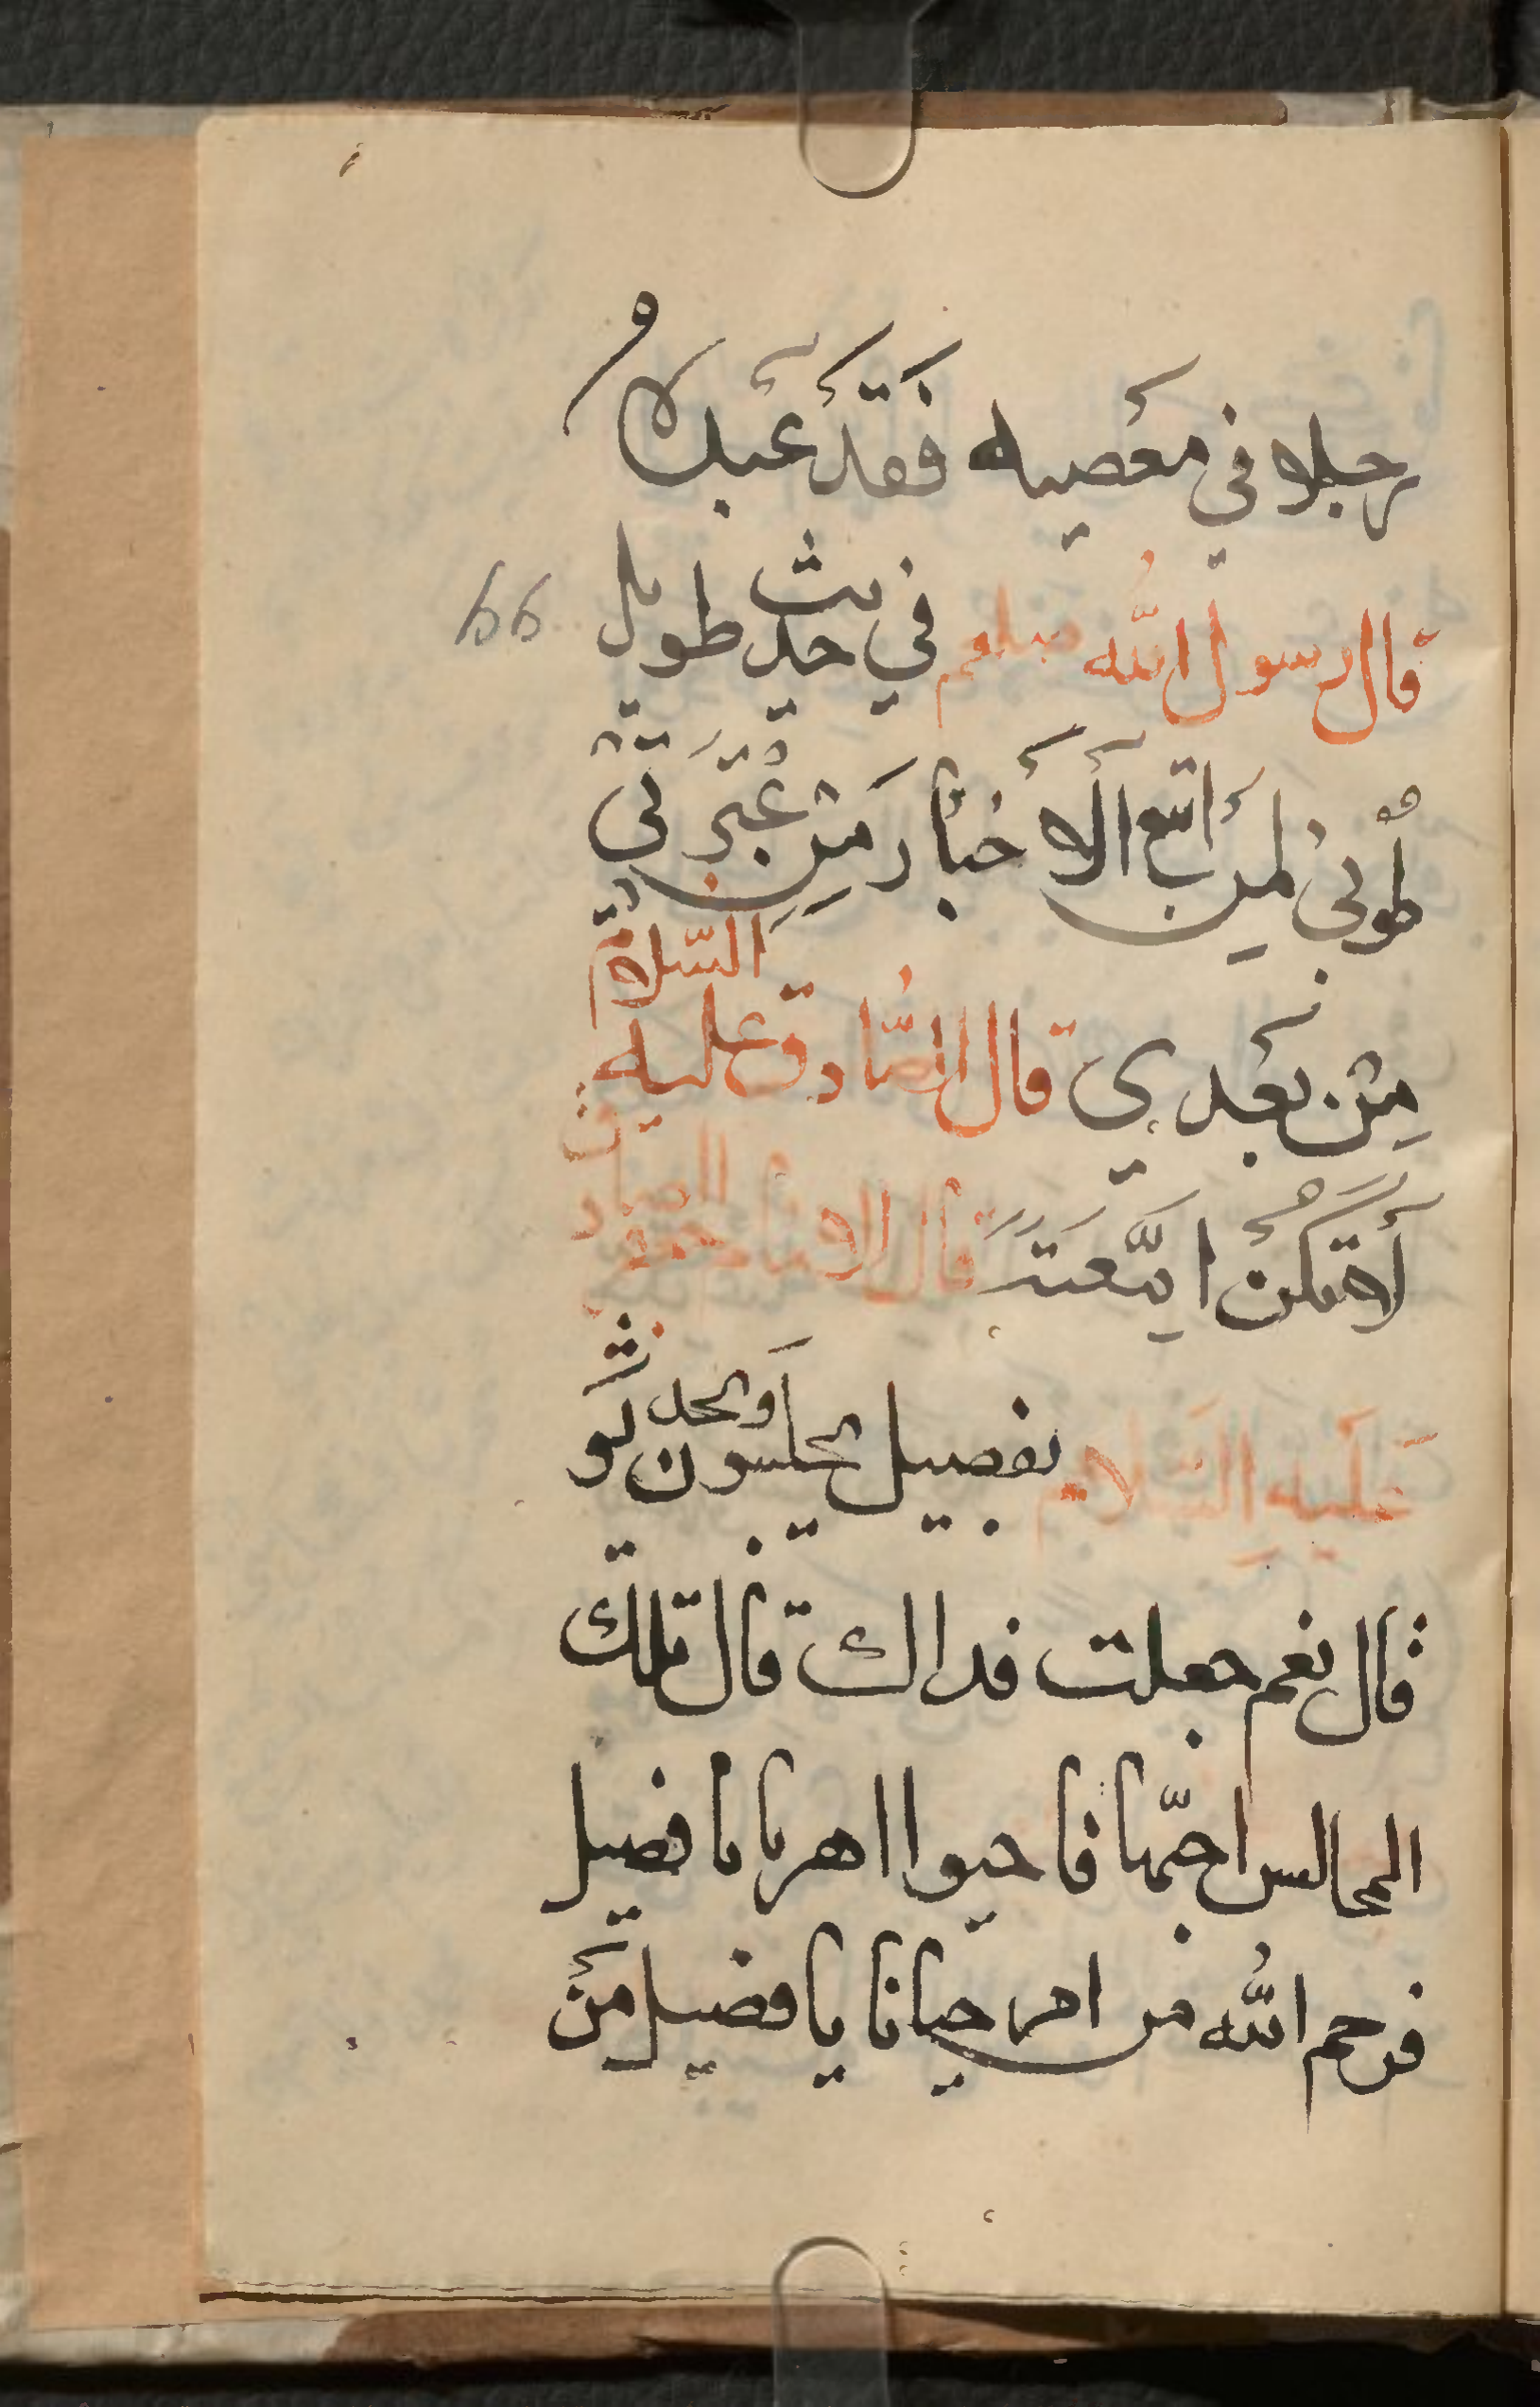 رجلا في معصيه فَقَدْ عَبْدهُ
قال رسول الله صلعم في حديث طويل
66
طُوبىٰ لمِنْ اتبع اَلْاَخبار مَنْ عُتْرَتي
مِنْ بعْدي قال الصّادق عليه السّلام
قال الامام جعفر الصادق
عَليه السَّلام يفضيل تجلسون وَتحدثو
قال نعم جعلت فداك قال تلك
المجالس احبّها فاحيوا امرنا يا فضيل
فرحم الله من احيانا يا فضيل مَنْ